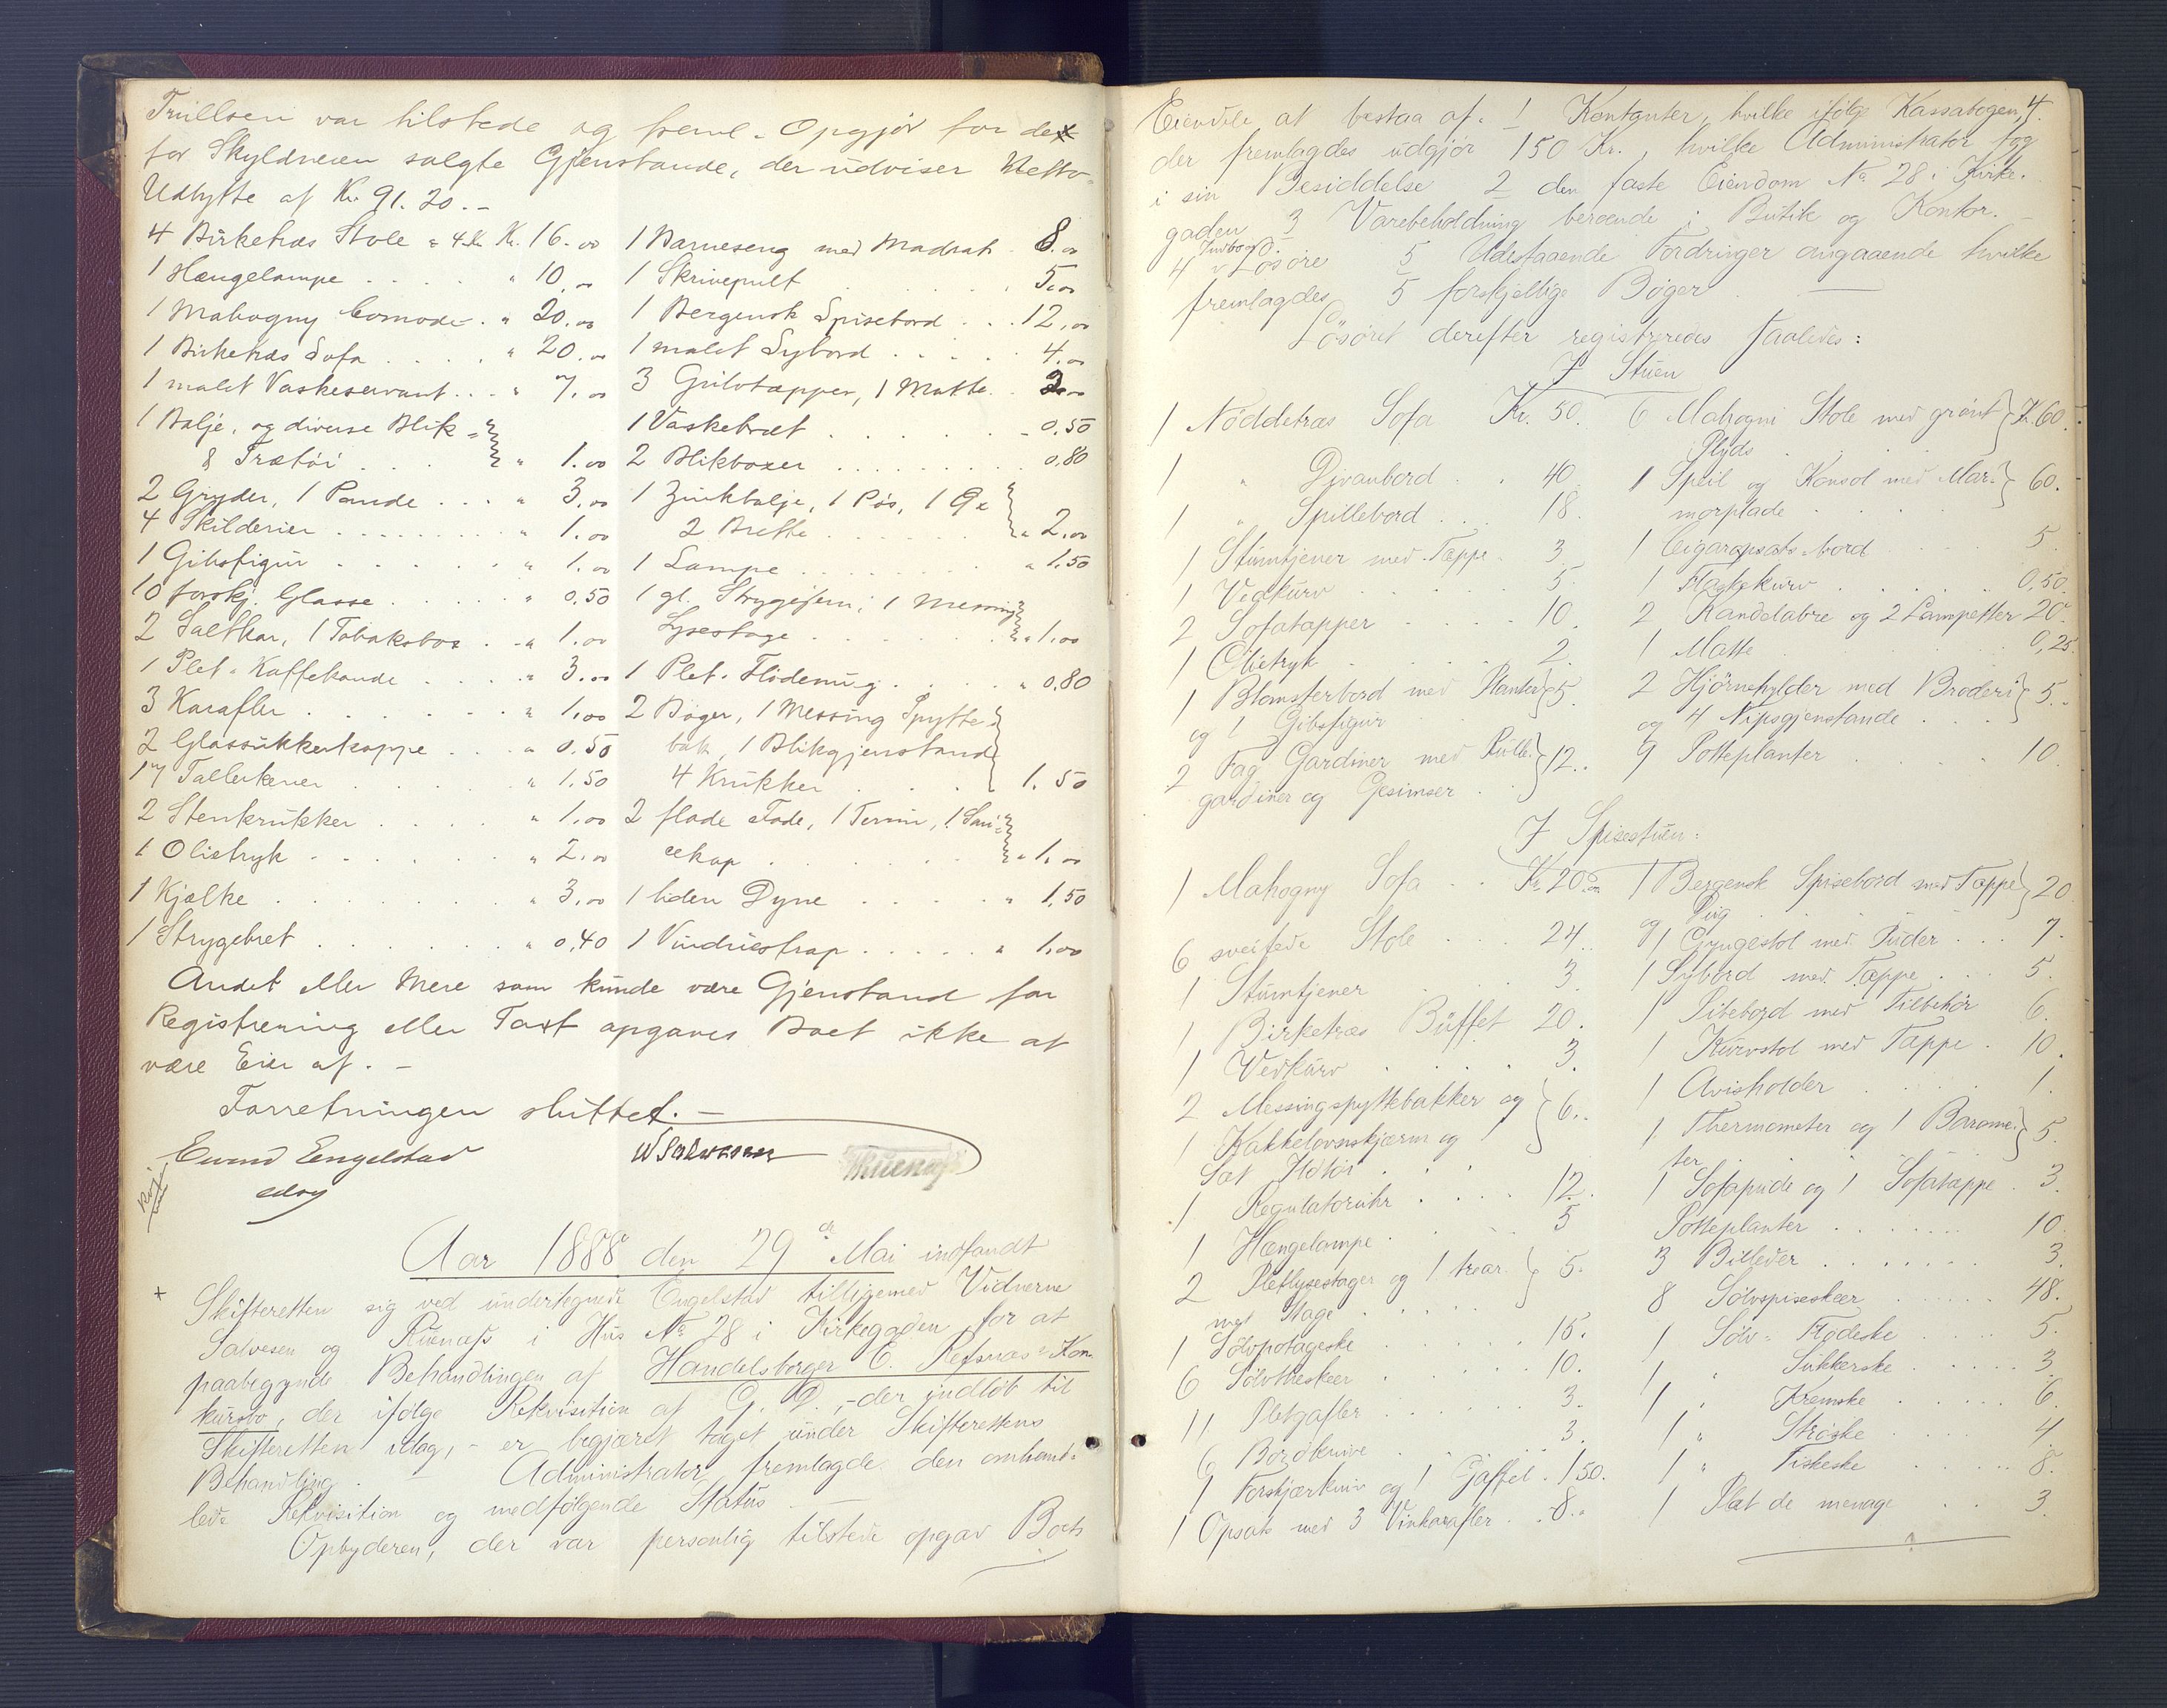 Trullsen var tilstede og freml. Opgjør for de
for Skyldneren solgte Gjenstande, der udviser Netto-
Udbytte af Kr. 91.20.-
4 Birketræs Stole a 4 Kr. Kr. 16.00
1 Hængelampe . . . . " 10.00
1 Mahogny Comode . " 20.00
1 Birketræs Sofa . . . . " 20.00
1 malet Vaskeservant . . . " 7.00
1 Balje, og diverse Blik-
& Trætøi . . . " 1.00
2 Gryder, 1 Pande . . . " 3.00
4 Skilderier . . . . . " 1.00
1 Gibsfigur . . . . . " 1.00
10 forskj. Glasse . . . . " 0.50
2 Saltkar, 1 Tobaksbox . . " 1.00
1 Plet-Kaffekande . . . . " 3.00
3 Karafler . . . . . . " 1.00
2 Glassukkerkoppe . . . " 0.50
17 Tallerkener . . . . " 1.50
2 Stenkrukker . . . . " 1.00
1 Olietryk . . . . . . " 2.00
1 Kjælke . . . . . . . " 3.00
1 Strygebret . . . . . . " 0.40
1 Barneseng med Madrats 8.00
1 Skrivepult . . . . . . 5.00
1 Bergensk Spisebord . . . 12.00
1 malet Sybord . . . . . 4.00
3 Gulvtæpper, 1 Matte . .
1 Vaskebræt . . . . . . 0.50
2 Blikboxer . . . . . . . 0.80
1 Zinkbalje, 1 Pøs, 1 Øx
2 Brette . . . . . . " 2.00
1 Lampe . . . . . . . . " 1.50
1 gl. Strygejern, 1 Messing
Lysestage . . . . . . " 1.00
1 Plet-Flødemug . . . . " 0.80
2 Bøger, 1 Messing Spytte-
bak, 1 Blikgjenstand
4 Krukker . . . . 1.50
2 flade Fade, 1 Terrin, 1 Sau-
cekop . . . . . . . " 1.00
1 liden Dyne . . . . . " 1.50
1 Vinduestrap . . . . . " 1.00
Andet eller Mere som kunde være Gjenstand for
Registrering eller Taxt opgaves Boet ikke at
være Eier af. -
Forretningen sluttet. -
Eivind Engelstad
edsv
W Salvesen
Aar 1888 den 29de Mai indfandt
Skifteretten sig ved undertegnede Engelstad tilligemed Vidnerne
Salvesen og Ruenæss i Hus No 28 i Kirkegaden for at
paabegynde Behandlingen af Handelsborger E. Refsnæs' Kon-
kursbo, der ifølge Rekvisition af G. D., - der indløb til
Skifteretten idag, - er begjæret taget under Skifterettens
Behandling. - Administrator fremlagde den omhand-
lede Rekvisition og medfølgende Status. -
Opbyderen, der var personlig tilstede opgav Boets
4.
Eiendele at bestaa af: 1 Kontanter, hvilke ifølge Kassabogen,
der fremlagdes udgjør 150 Kr., hvilke Administrator tog
i sin Besiddelse 2 den faste Eiendom No 28 i Kirke-
gaden 3 Varebeholdning beroende i Butik og Kontor. -
4 Indbo og d. Løsøre 5 Udestaaende Fordringer angaaende hvilke
fremlagdes 5 forskjellige Bøger. -
Løsøret derefter registreredes saaledes:
I Stuen
1 Nøddetræs Sofa Kr. 50.
1 " Divanbord . . 40.
1 " Spillebord . . . 18.
1 Stumtjener med Tæppe . 3.
1 Vedkurv . . . . . 5.
2 Sofatæpper . . . . 10.
1 Olietryk . . . . . 2.
1 Blomsterbord med Planter
og 1 Gibsfigur . . . 5.
2 Fag Gardiner med Rulle-
gardiner og Gesimser . . 12.
6 Mahogni Stole med grønt
Plyds . . . . . Kr. 60.
1 Speil og Konsol med Mar-
morplade . . . . . 60.
1 Cigaropsats-bord . . 5.
1 Flaskekurv . . . . . 0,50.
2 Kandelabre og 2 Lampetter 20.
1 Matte . . . . . . 0,25.
2 Hjørnehylder med Broderi
og 4 Nipsgjenstande . . . 5.
9 Potteplanter . . . . . 10.
I Spisestuen:
1 Mahogny Sofa . . Kr. 20.00
6 sveifede Stole . . . 24.
1 Stumtjener . . . . 3.
1 Birketræs Buffet 20.
1 Vedkurv . . . . . 3.
2 Messingspyttebakker og
1 Kakkelovnskjærm og 1
Sæt Ildtøi . . . . 6.
1 Regulatoruhr . . . . 12.
1 Hængelampe . . . . 5
2 Pletlysestager og 1 trear-
met Stage . . . . . 5.
1 Sølvpotageske . . . . 15.
6 Sølvtheskeer . . . . 10.
11 Pletgafler . . . . . 3.
6 Bordknive . . . . . 3.
1 Forskjærkniv og 1 Gaffel . 1,50.
1 Opsats med 3 Vinkarafler . . 8.
1 Bergensk Spisebord med Tæppe
og Dug . . . . . 20
1 Gyngestol med Puder . . . 7.
1 Sybord med Tæppe . . . 5.
1 Pibebord med Tilbehør 6.
1 Kurvstol med Tæppe . 10.
1 Avisholder . . . . . 1.
1 Thermometer og 1 Barome-
ter . . . . . 5.
1 Sofapude og 1 Sofatæppe . 3.
Potteplanter . . . . . . 10.
3 Billeder . . . . . . . 3.
8 Sølvspiseskeer . . . . . 48.
1 Sølv-Flødeske . . . . 5.
1 " Sukkerske . . . . . 3
1 " Kremske . . . . . 6.
1 " Strøske . . . . . 4
1 " Fiskeske . . . . . 8.
1 Plat de menage . . . 3.